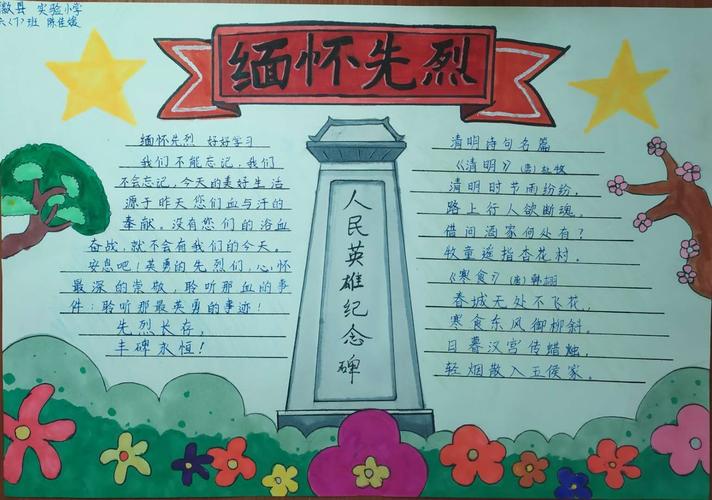 徽县 实验小学
六(7)班 陈佳媛
缅怀先烈
缅怀先烈 好好学习
我们不能忘记，我们
不会忘记，今天的美好生活
源于昨天您们血与汗的
奉献。没有您们的浴血
奋战，就不会有我们的今天。
安息吧！英勇的先烈们，心怀
最深的崇敬，聆听那血的事
件：聆听那最英勇的事迹！
先烈长存，
丰碑永恒！
人民英雄纪念碑
清明诗句名篇
《清明》（唐）杜牧
清明时节雨纷纷，
路上行人欲断魂。
借问酒家何处有？
牧童遥指杏花村。
《寒食》（唐）韩翃
春城无处不飞花，
寒食东风御柳斜。
日暮汉宫传蜡烛，
轻烟散入五侯家。